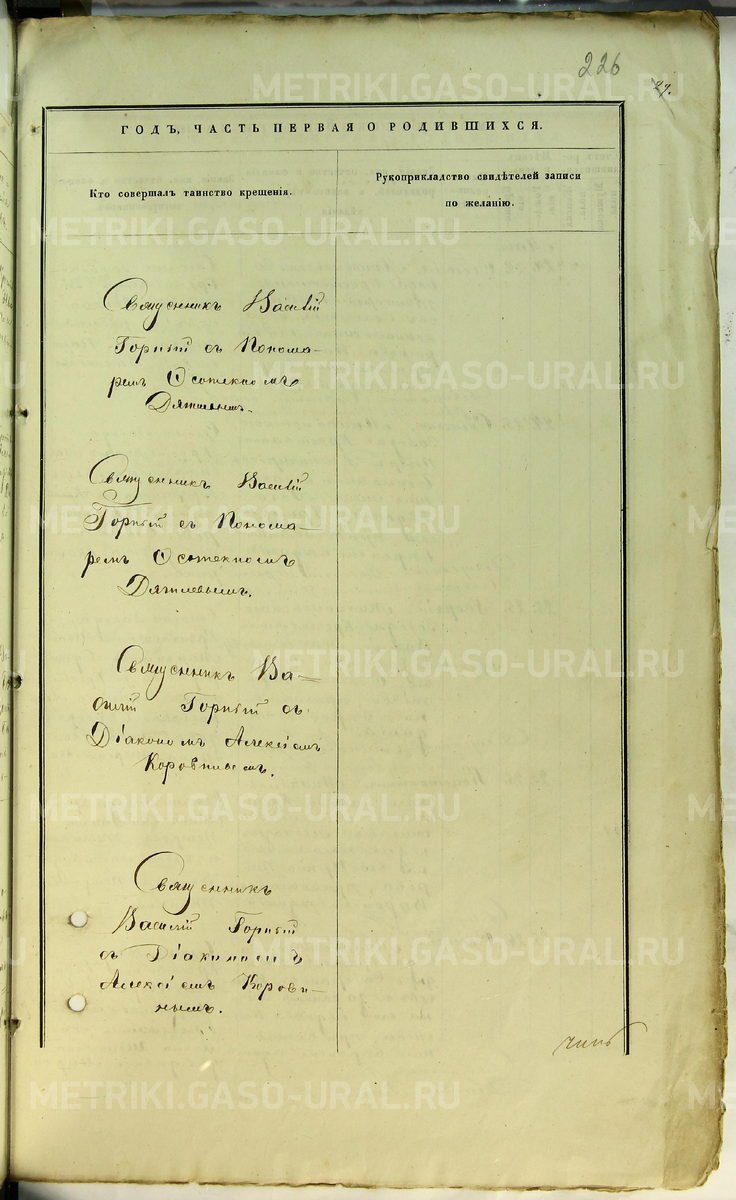 226
27.
ГОДЪ, ЧАСТЬ ПЕРВАЯ О РОДИВШИХСЯ.
Кто совершалъ таинство крещенія.
Рукоприкладство свидѣтелей записи
по желанію.
Священникъ Василій
Горный съ Понома-
ремъ Ѳеоктистомъ
Дягилевымъ.
Священникъ Василій
Горный съ Понома-
ремъ
Дягилевымъ.
Священникъ Ва-
силій Горный съ
Діакономъ Алексіемъ
Коровинымъ.
Священникъ
Василій Горный
съ Діакономъ
Алексіемъ Корови-
нымъ.
METRIKI.GASO-URAL.RU